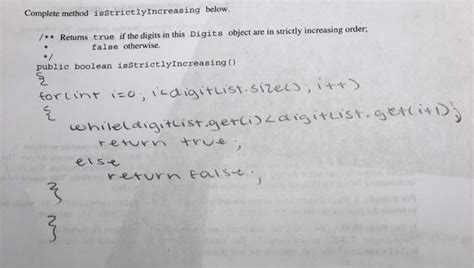 Complete method isStrictlyIncreasing below.
/** Returns true if the digits in this Digits object are in strictly increasing order;
* false otherwise.
*/
public boolean isStrictlyIncreasing()
{
for(int i=0; i<digitList.size(); i++)
{
while(digitList.get(i)<digitList.get(i+1))
return true;
else
return false;
}
}